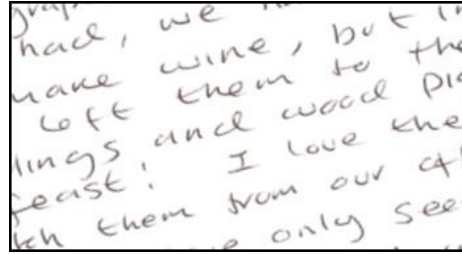 had, we
make wine, but
left them to the
lings and wood
feast! I love the
them from our
only see